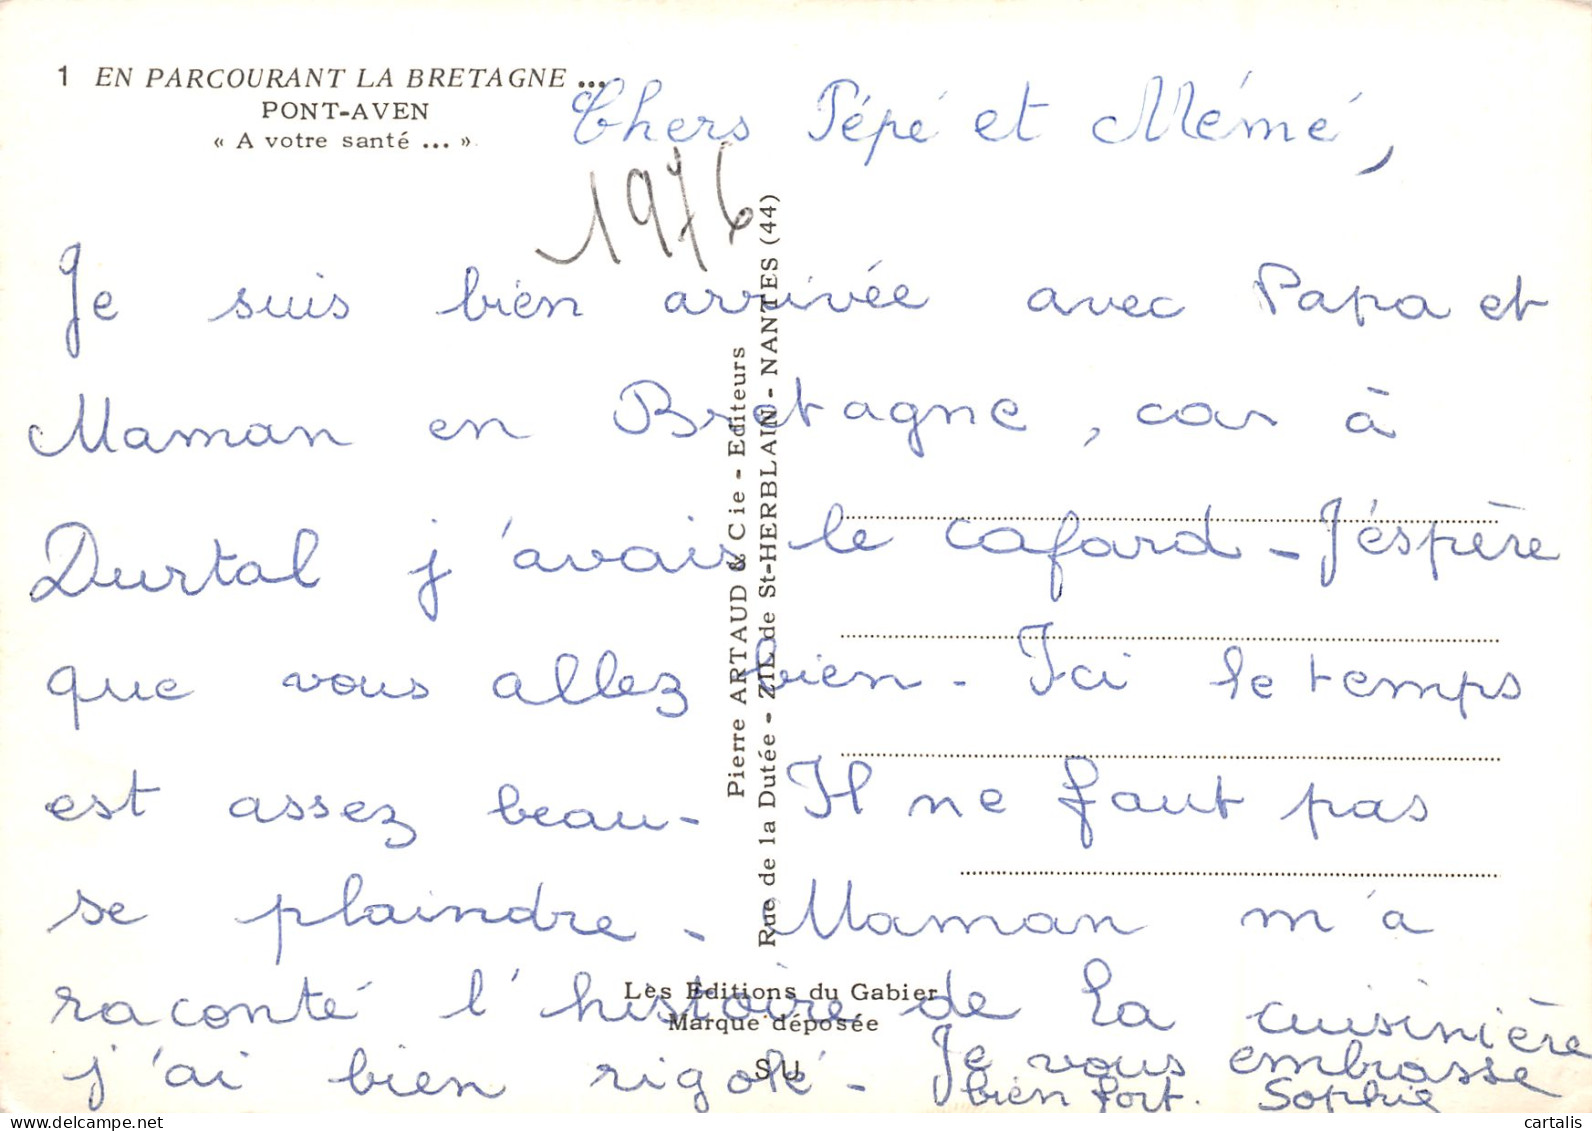 1 EN PARCOURANT LA BRETAGNE ...
PONT-AVEN
« A votre santé ... »
Chers Pépé et Mémé,
1976
Je suis bien arrivée avec Papa et
Maman en Bretagne, car à
Durtal j'avais le cafard - J'éspère
que vous allez bien - Ici le temps
est assez beau - Il ne faut pas
se plaindre - Maman m'a
raconté l'histoire de la cuisinière
j'ai bien rigolé - Je vous embrasse
bien fort. Sophie
Pierre ARTAUD & Cie - Editeurs
Rue de la Dutée - ZIL de St-HERBLAIN - NANTES (44)
Les Editions du Gabier
Marque déposée
S U
cartalis.com